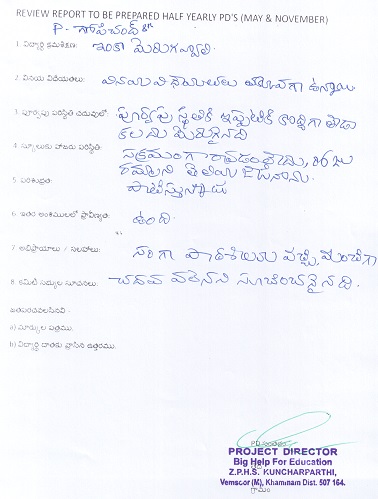 REVIEW REPORT TO BE PREPARED HALF YEARLY PD'S (MAY & NOVEMBER)
P. గోపిచంద్ 8th
1. విద్యార్థి క్రమశిక్షణ: ఇంకా మెరుగవ్వాలి
2. వినయ విధేయతలు: వినయ విధేయతలు బాగా ఉన్నాయి
3. పూర్వపు పరిస్థితి చదువులో: పూర్వపు స్థితికి ఇప్పటికి కొద్దిగా తేడా
కలదు మెరుగైనది
4. స్కూలుకు హాజరు పరిస్థితి: సక్రమంగా రావడంలేదు, రోజు
రమ్మని తెలియజేసినాము.
5. పరిశుభ్రత: పాటిస్తున్నాడు
6. ఇతర అంశములలో ప్రావీణ్యత: ఉంది.
7. అభిప్రాయాలు / సలహాలు: సరిగా పాఠశాలకు వచ్చి, మంచిగా
8. కమిటీ సభ్యుల సూచనలు: చదవ వలెనని సూచించనైనది.
జతపరచవలసినవి -
a) మార్కుల పత్రము.
b) విద్యార్థి దాతకు వ్రాసిన ఉత్తరము.
PD సంతకం
PROJECT DIRECTOR
Big Help For Education
Z.P.H.S. KUNCHARPARTHI,
Vemsoor (M), Khammam Dist. 507 164.
గ్రామం